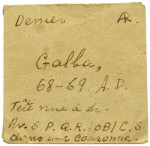 Denier AR.
Galba.
68-69 A.D.
Tête nue à dr.
Rv. S. P. Q. R. / OB / C. S
dans une couronne.